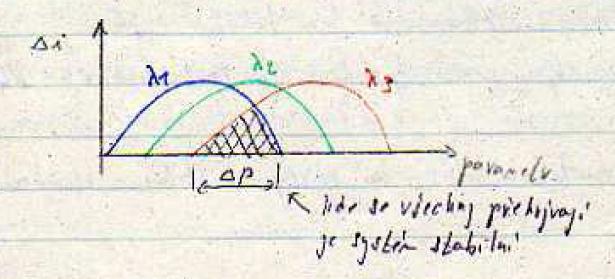 Δi
λ1 λ2 λ3
ΔP
parametr.
kde se všechny překrývají
je systém stabilní